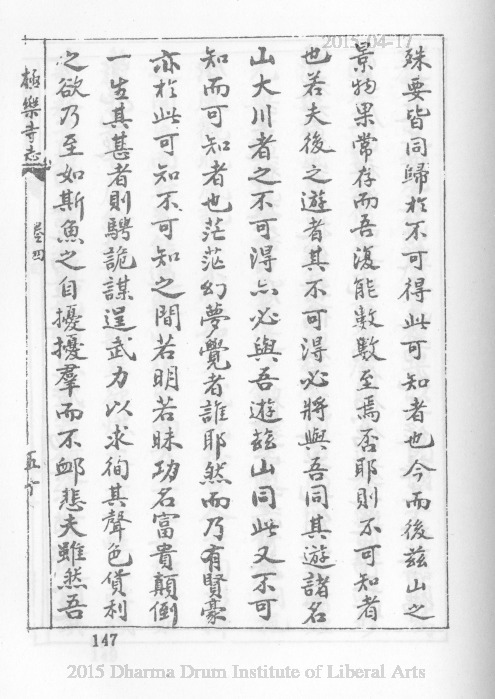 2015-04-17
殊要皆同歸於不可得此可知者也今而後茲山之
景物果常存而吾復能數數至焉否耶則不可知者
也若夫後之遊者其不可得必將與吾同其遊諸名
山大川者之不可得亦必與吾遊茲山同此又不可
知而可知者也茫茫幻夢覺者誰耶然而乃有賢豪
亦於此可知不可知之間若明若昧功名富貴顛倒
一生其甚者則騁詭謀逞武力以求徇其聲色貨利
之欲乃至如斯魚之自擾擾羣而不卹悲夫雖然吾
極樂寺志
卷四
147
2015 Dharma Drum Institute of Liberal Arts